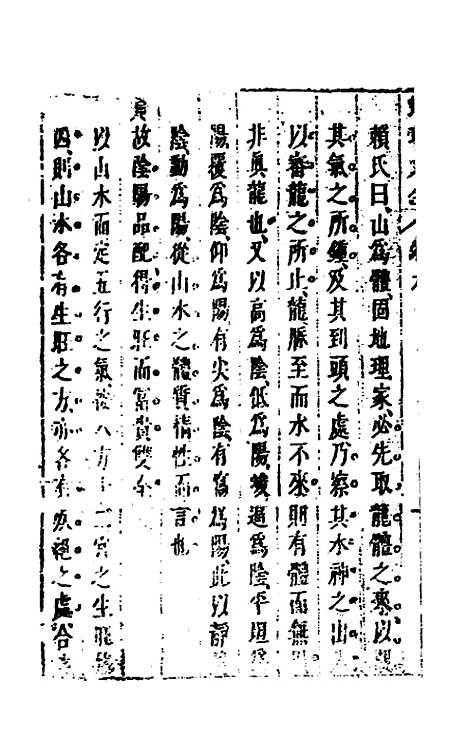 賴氏曰、山爲體、固地理家、必先取龍體之來、以
其氣之所鍾、及其到頭之處、乃察其水神之出
以審龍之所止、龍脈至而水不來、則有體而無
非眞龍也、又以高爲陰、低爲陽、逼爲陰、平坦爲
陽、覆爲陰、仰爲陽、有尖爲陰、有窩爲陽、此以靜
陰、動爲陽、從山水之體質情性而言也
故陰陽品配得生旺而富貴雙全
以山水而定五行之氣 八方十二宮之生旺
四、則山水各有生旺之方、亦各有 絕之處、合